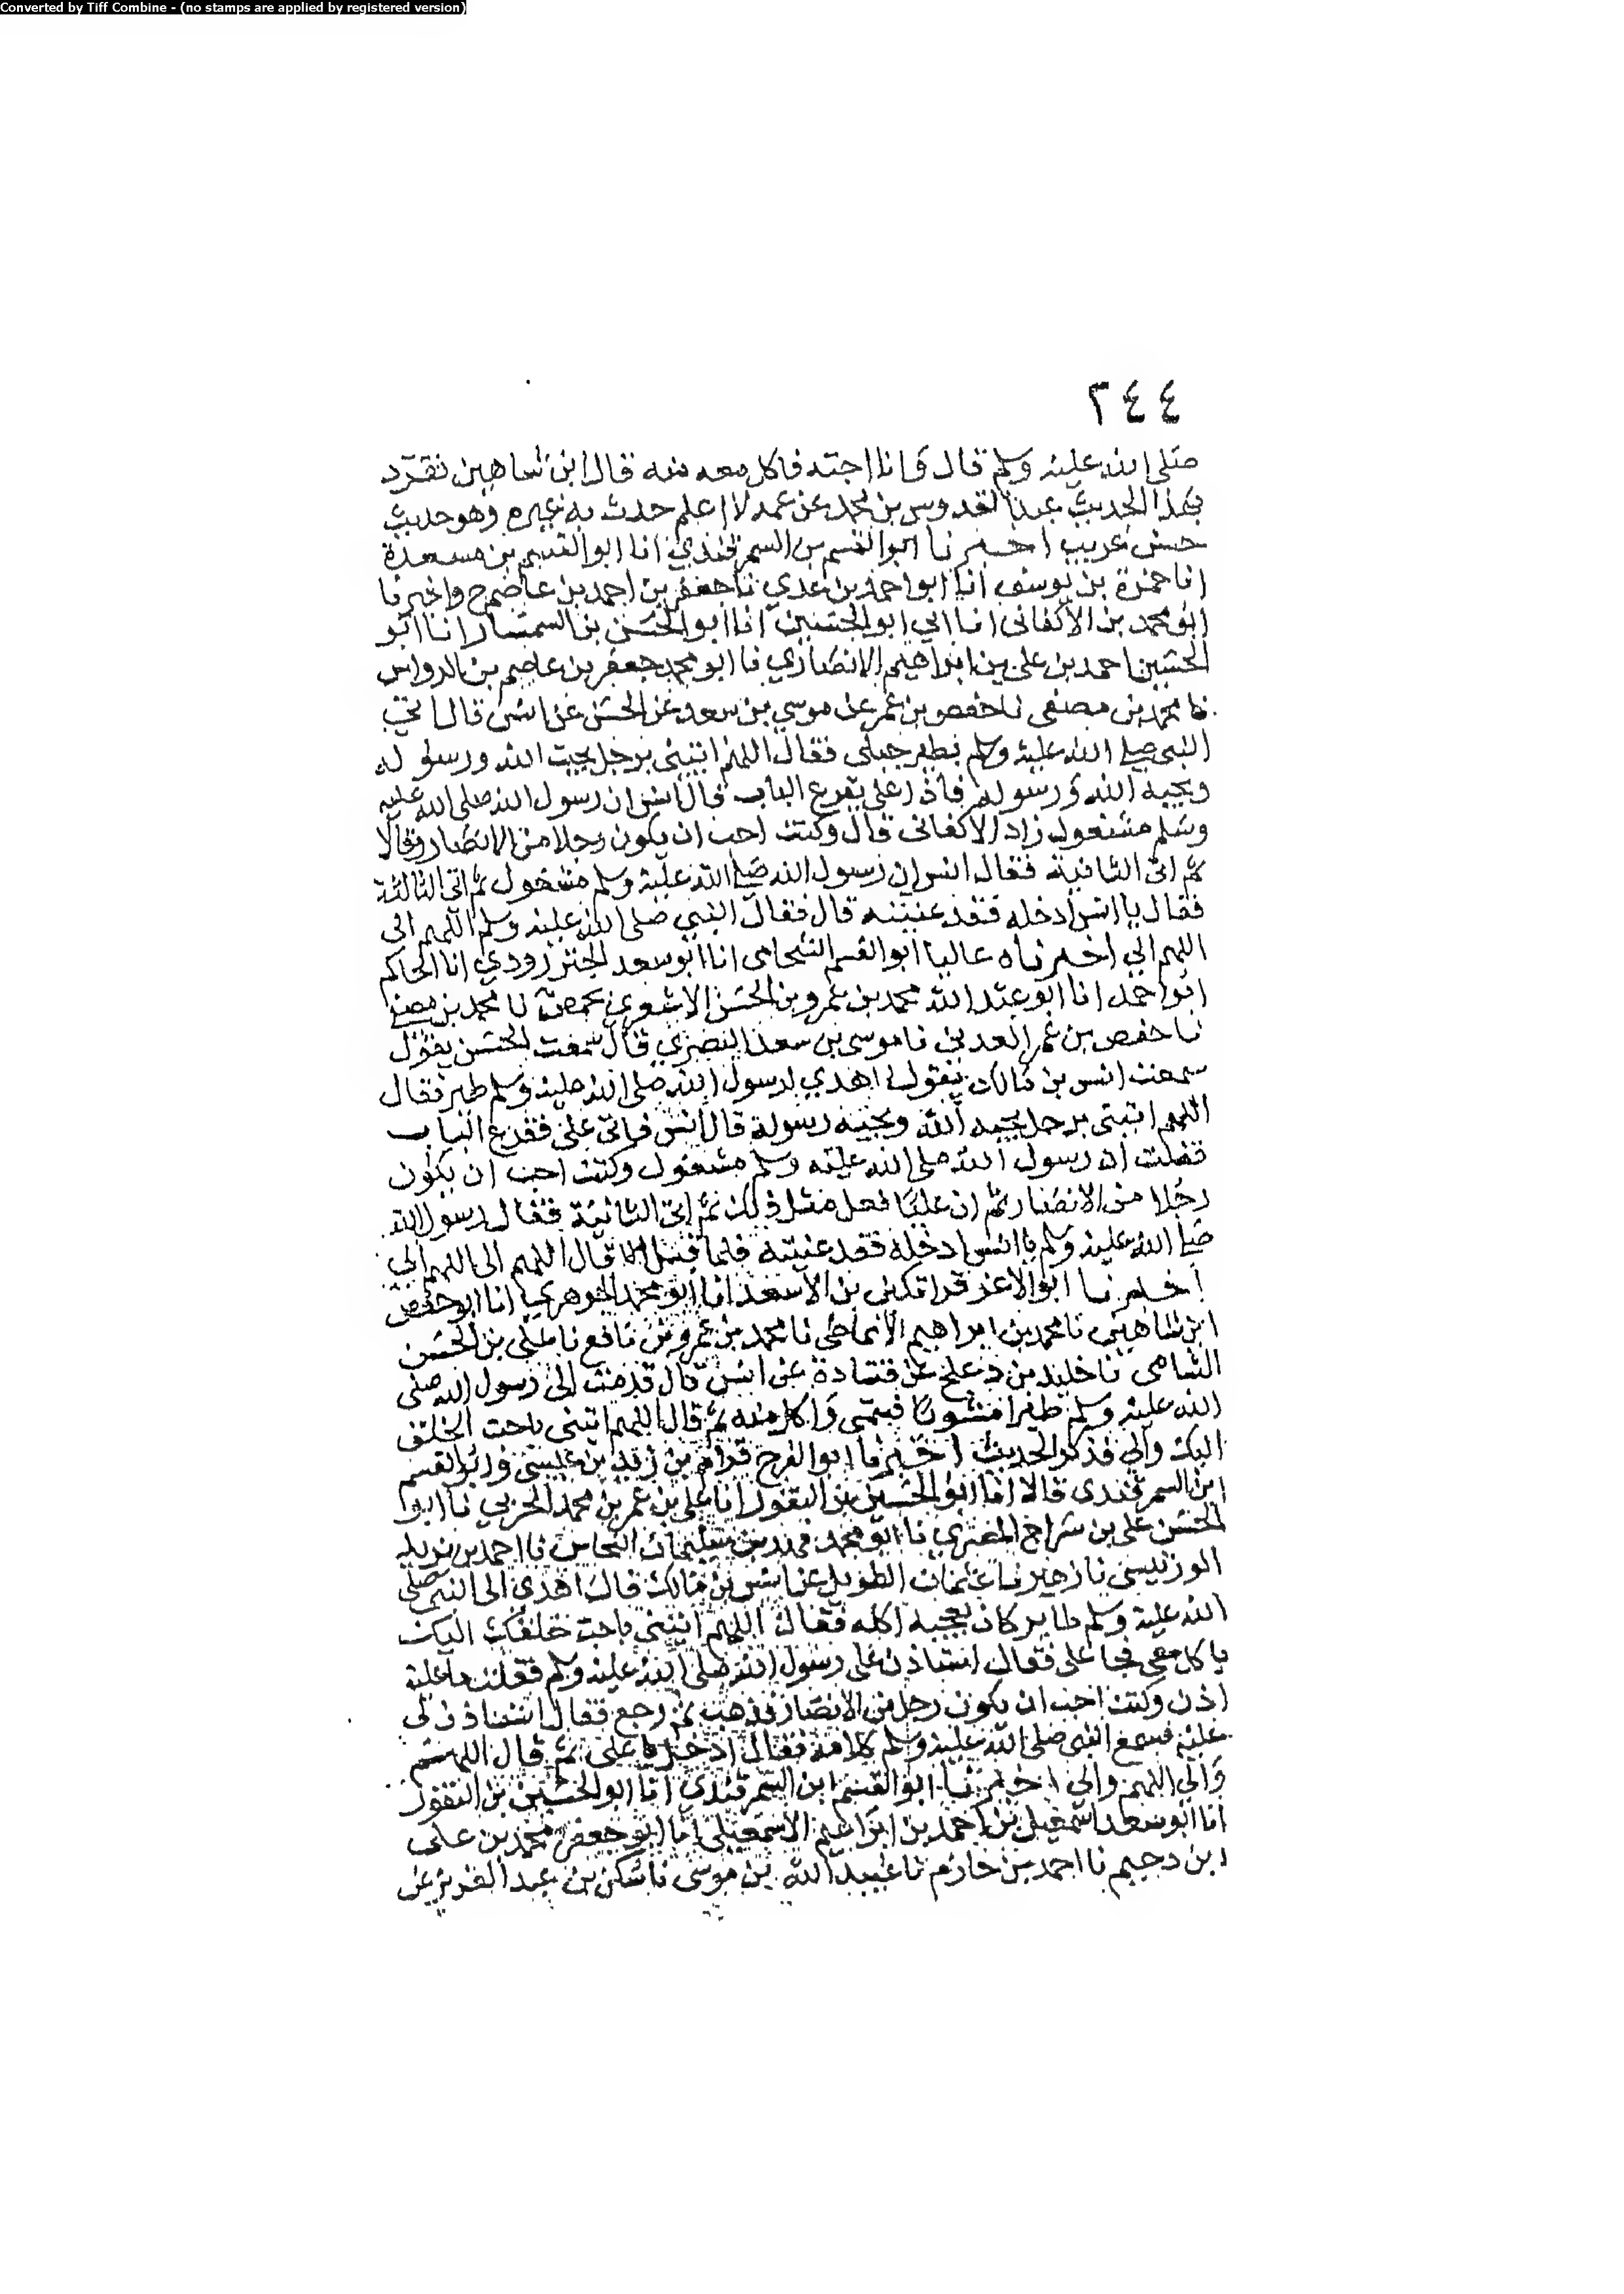 Converted by Tiff Combine - (no stamps are applied by registered version)
٢٤٤
صلى الله عليه وسلم قال وانا اجته فاكل معه منه قال ابن شاهين تفرد
بهذا الحديث عبد القدوس بن محمد عن عمه لا اعلم حدث به غيره وهو حديث
حسن غريب اخبرنا ابو القسم بن السمرقندي انا ابو القسم بن مسعدة
انا حمزة بن يوسف انا ابو احمد بن عدي نا جعفر بن احمد بن عاصم ح واخبرنا
ابو محمد بن الاكفانى انا ابي ابو الحسين انا ابو الحسن بن السمسار انا ابو
الحسين احمد بن على بن ابراهيم الانصاري نا ابو محمد جعفر بن عاصم بن الرواس
نا محمد بن مصفى نا حفص بن عمر عن موسي بن سعد عن الحسن عن انس قال اتي
النبي صلى الله عليه وسلم بطير جبلى فقال اللهم ائتنى برجل يحب الله ورسوله
ويحبه الله ورسوله فاذا على يقرع الباب قال انس ان رسول الله صلى الله عليه
وسلم مشغول زاد الاكفانى قال وكنت احب ان يكون رجلا من الانصار وقالا
ثم اتى الثانية فقال انس ان رسول الله صلى الله عليه وسلم مشغول ثم اتى الثالثة
فقال يا انس ادخله فقد عنيته قال فقال النبي صلى الله عليه وسلم اللهم الى
اللهم الي اخبرناه عاليا ابو القسم الشحامى انا ابو سعد الجنزرودي انا الحاكم
ابو احمد انا ابو عبد الله محمد بن عمرو بن الحسن الاشعري بحمص نا محمد بن مصفى
نا حفص بن عمر العدنى نا موسى بن سعد البصري قال سمعت الحسن يقول
سمعت انس بن مالك يقول اهدي لرسول الله صلى الله عليه وسلم طير فقال
اللهم ائتنى برجل يحبه الله ويحبه رسوله قال انس فاتى على فقرع الباب
فقلت ان رسول الله صلى الله عليه وسلم مشغول وكنت احب ان يكون
رجلا من الانصار ثم ان عليا فعل مثل ذلك ثم اتى الثانية فقال رسول الله
صلى الله عليه وسلم يا انس ادخله فقد عنيته فلما قال اللهم الى اللهم الى
اخبرنا ابو الاعز قراتكين بن الاسعد انا ابو محمد الجوهري انا ابو حفص
ابن شاهين نا محمد بن ابراهيم الانماطى نا محمد بن عمرو بن نافع نا على بن الحسن
الشامى نا خليد بن دعلج عن قتادة عن انس قال قدمت الى رسول الله صلى
الله عليه وسلم طيرا مشويا فسمى واكل منه ثم قال اللهم ائتنى باحب الخلق
اليك والي فذكر الحديث اخبرنا ابو الفرج قوام بن زيد بن عيسى وابو القسم
ابن السمرقندى قالا انا ابو الحسين بن النقور انا على بن عمر بن محمد الحربي نا ابو
الحسن على بن سراج المصري نا ابو محمد فهد بن سليمان النحاس نا احمد بن يزيد
الورتنيسى نا زهير نا عثمان الطويل عن انس بن مالك قال اهدى الى النبي صلى
الله عليه وسلم طاير كان يعجبه اكله فقال اللهم ائتنى باحب خلقك اليك
ياكل معي فجا على فقال استاذن على رسول الله صلى الله عليه وسلم فقلت ما عليه
اذن وكنت احب ان يكون رجل من الانصار فذهب ثم رجع فقال استاذن لى
عليه فسمع النبى صلى الله عليه وسلم كلامه فقال ادخل يا على ثم قال اللهم
والي اللهم والي اخبرنا ابو القسم ابن السمرقندي انا ابو الحسين بن النقور
انا ابو سعد اسمعيل بن احمد بن ابراهيم الاسمعيلى انا ابو جعفر محمد بن على
ابن دحيم نا احمد بن حازم نا عبيد الله بن موسى نا سكين بن عبد العزيز عن